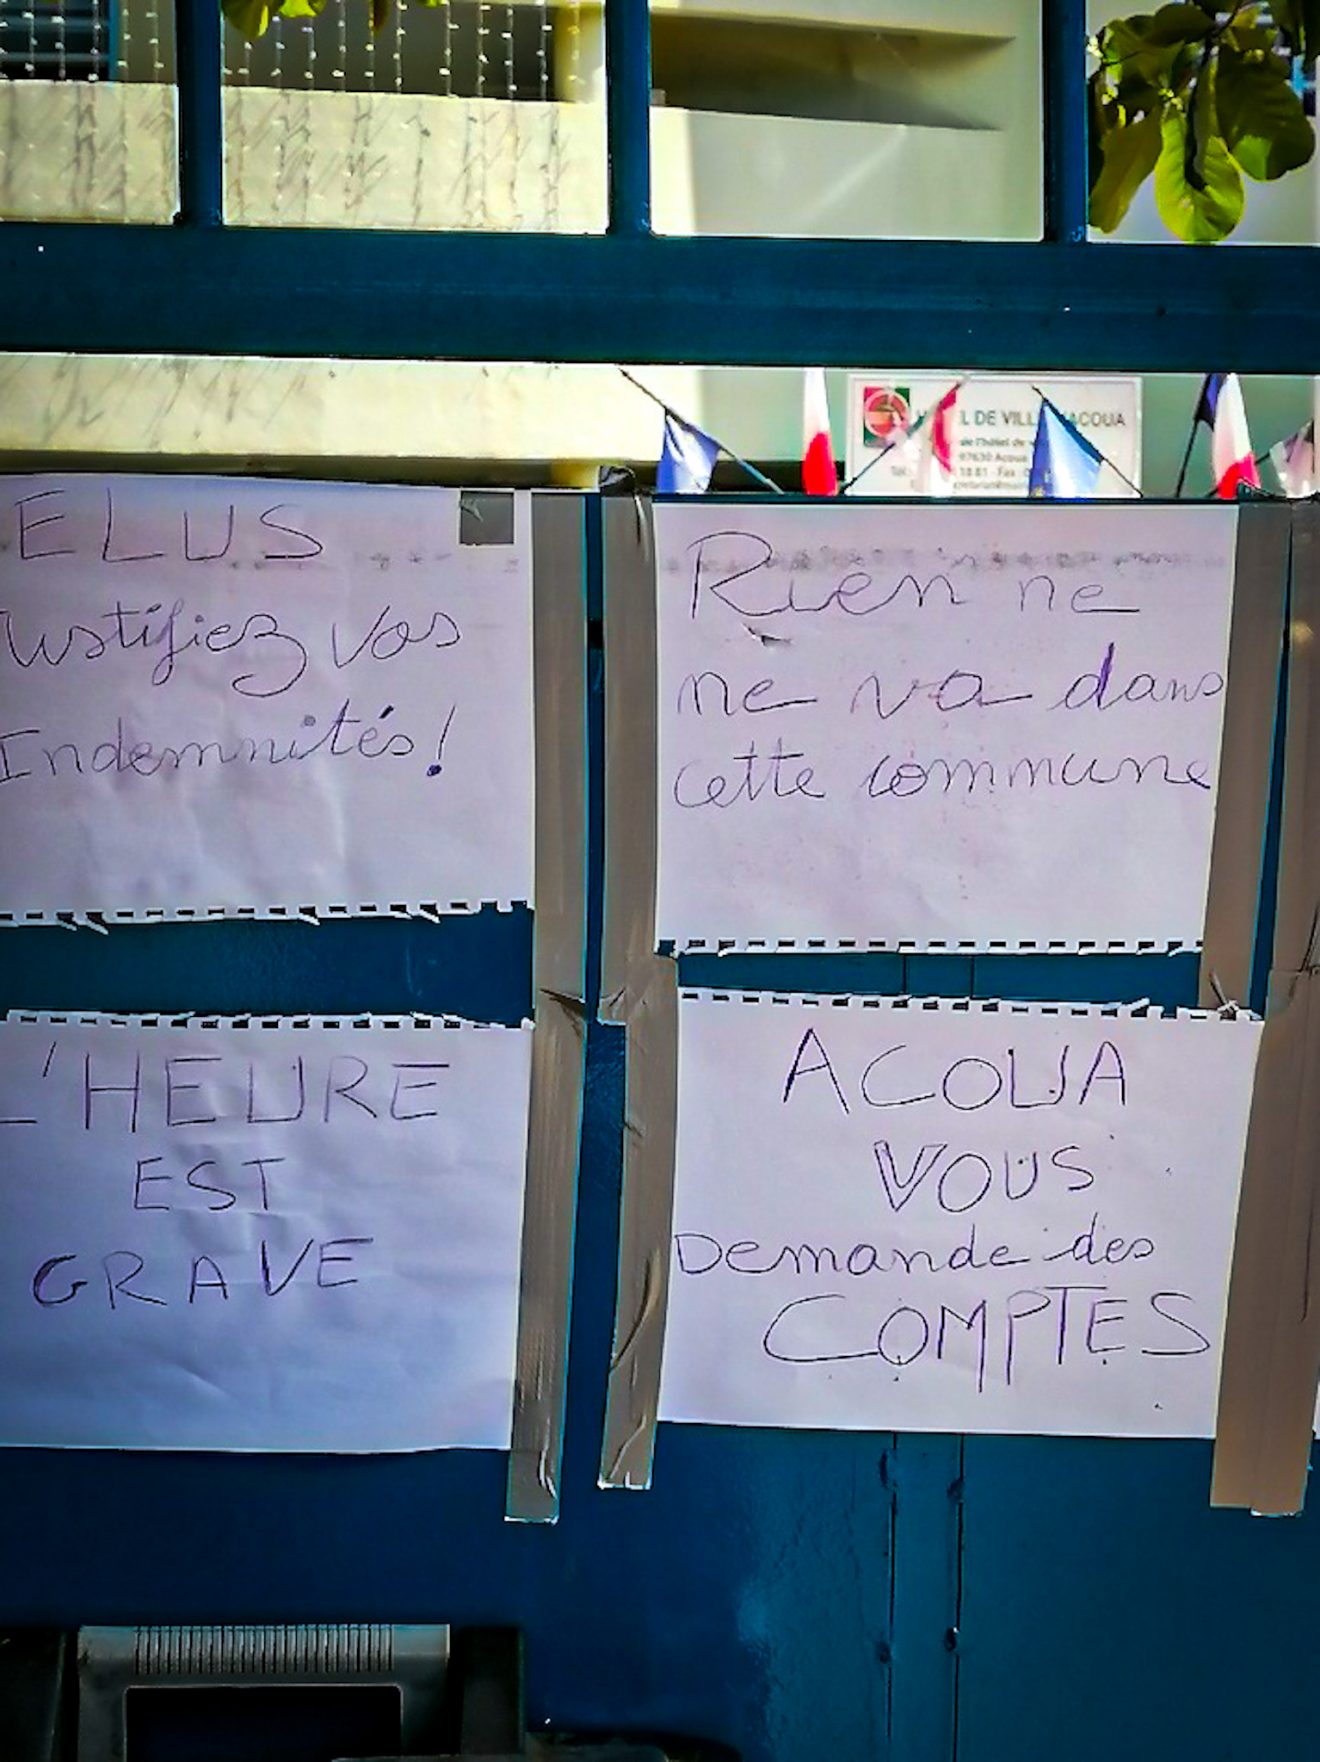 DE VILL
ACOUA
de l'hôtel de
97630 Acoua
Tél
18 81 - Fax
ELUS
ustifiez vos
Indemnités!
Rien ne
ne va dans
cette commune
L'HEURE
EST
GRAVE
ACOUA
VOUS
Demande des
COMPTES